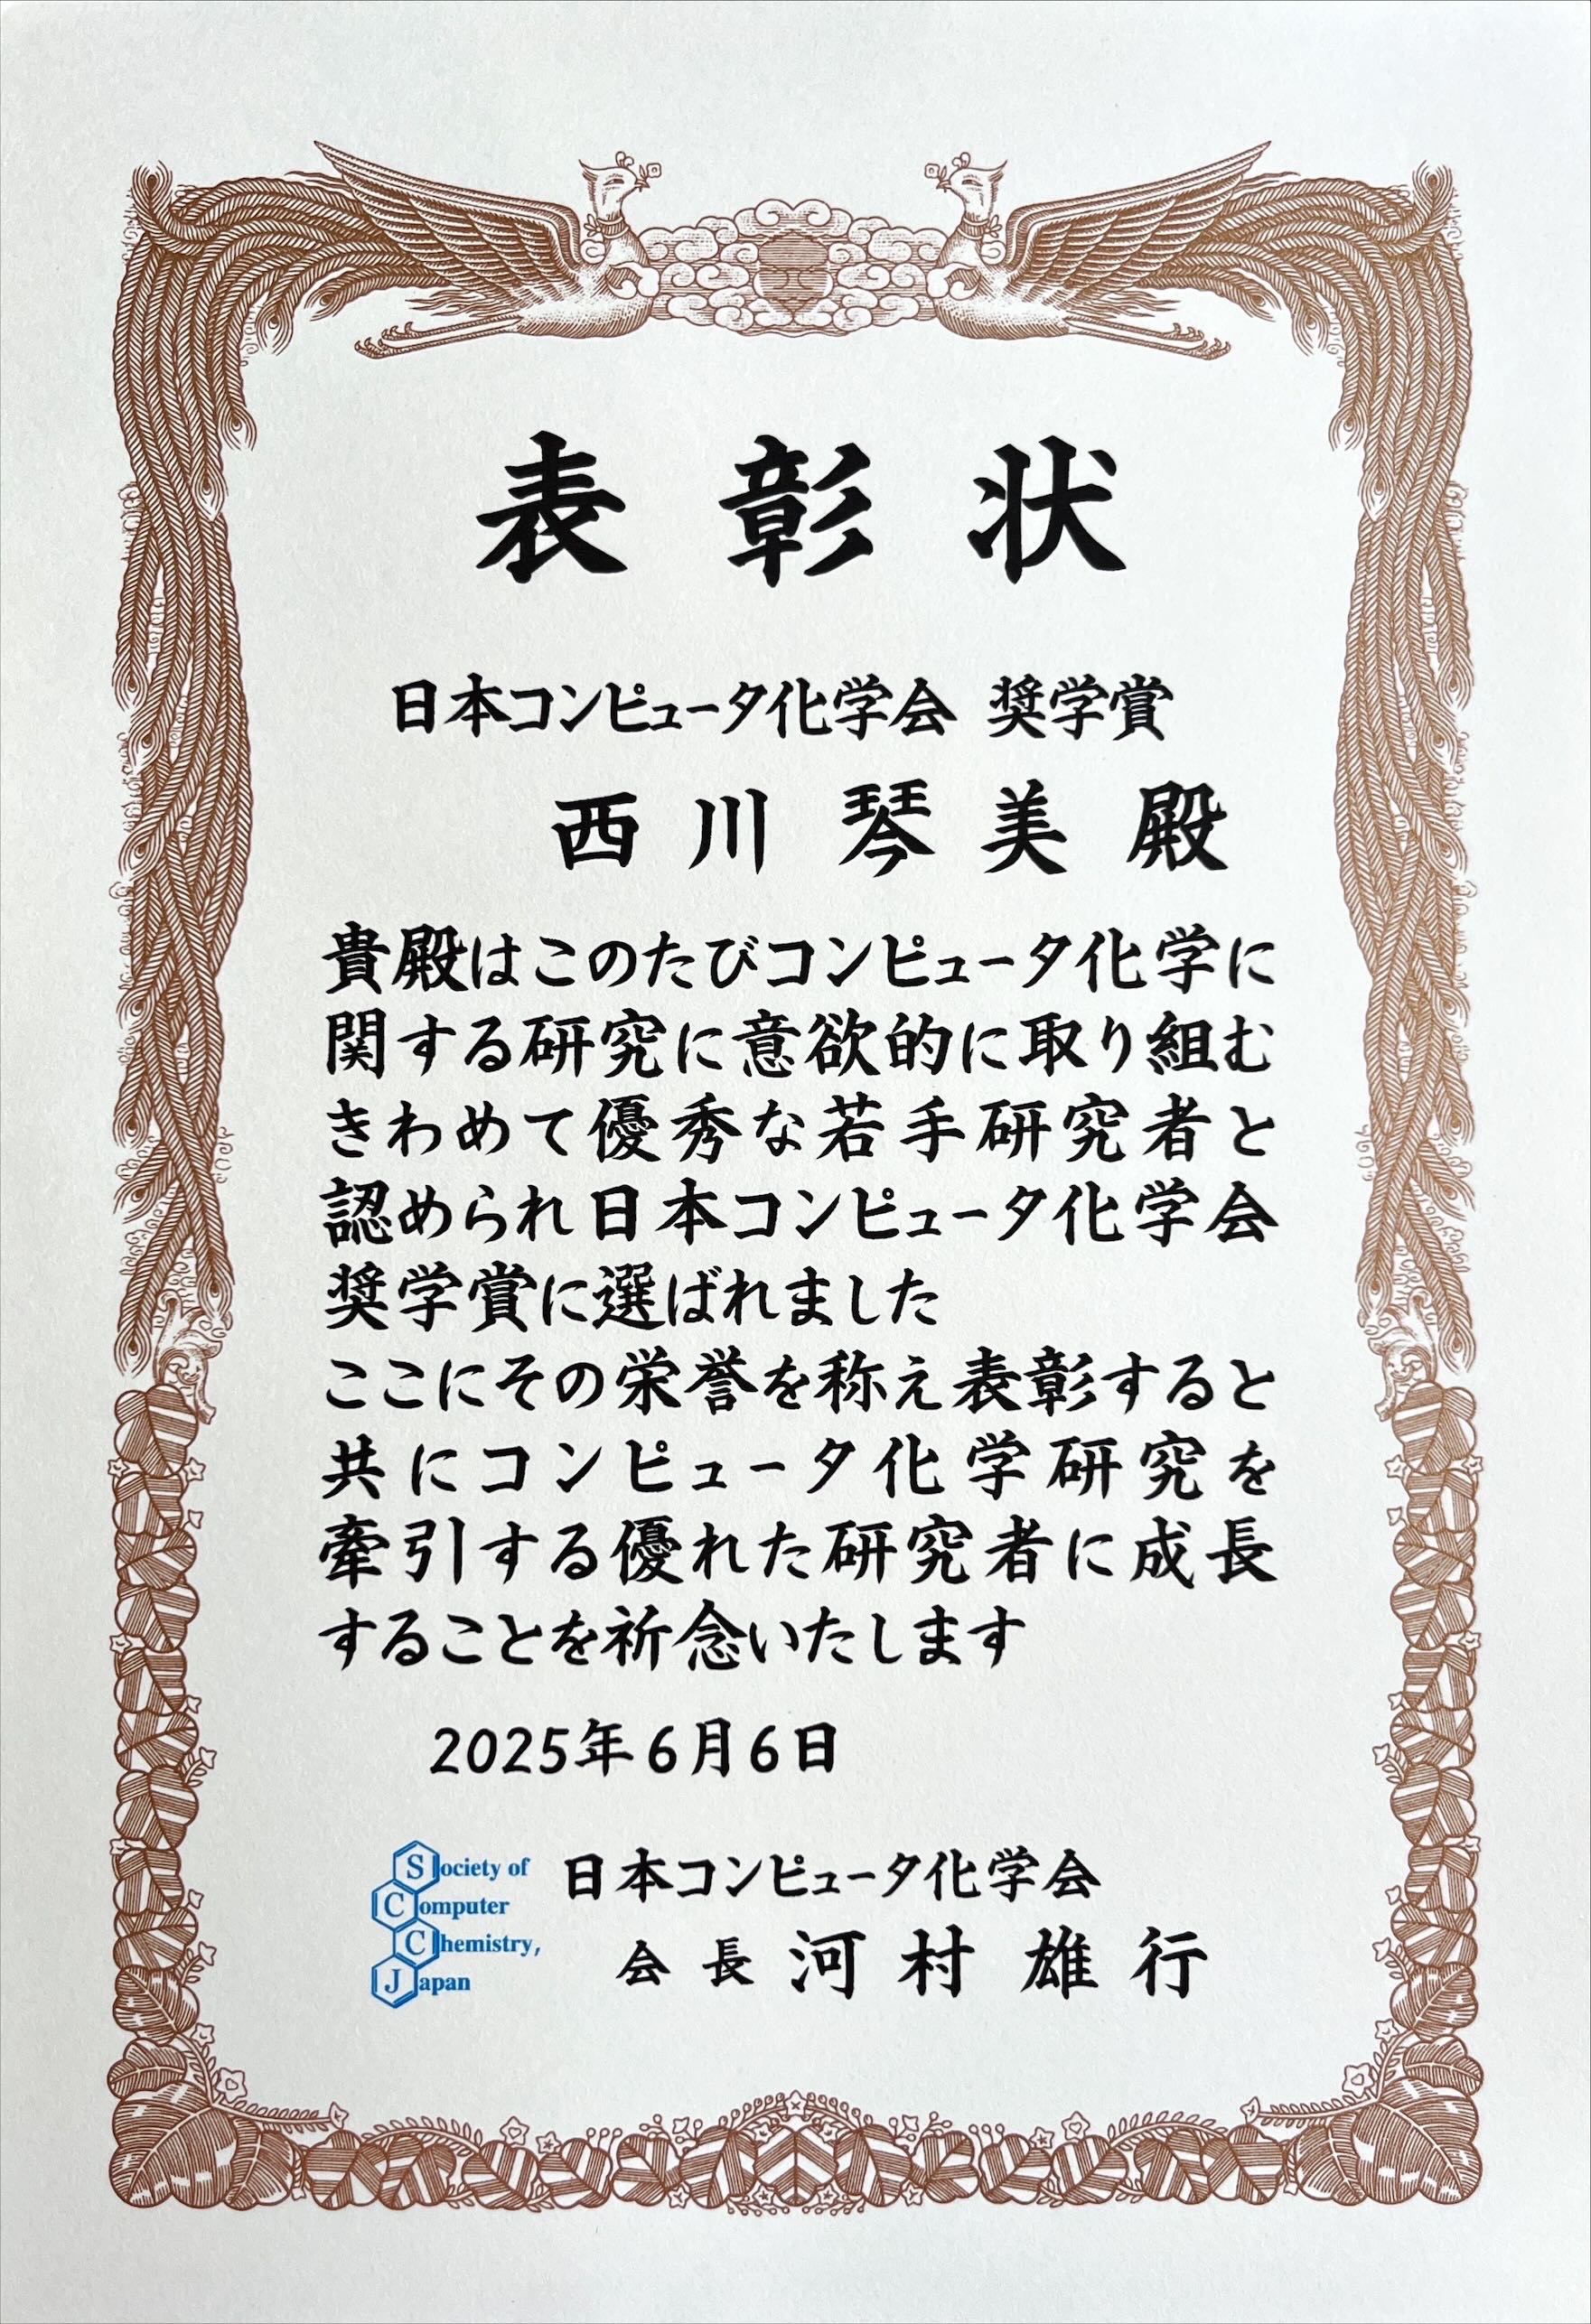 表彰状
日本コンピュータ化学会 奨学賞
西川琴美殿
貴殿はこのたびコンピュータ化学に
関する研究に意欲的に取り組む
きわめて優秀な若手研究者と
認められ日本コンピュータ化学会
奨学賞に選ばれました
ここにその栄誉を称え表彰すると
共にコンピュータ化学研究を
牽引する優れた研究者に成長
することを祈念いたします
2025年6月6日
Society of
Computer
Chemistry,
Japan
日本コンピュータ化学会
会長 河村雄行